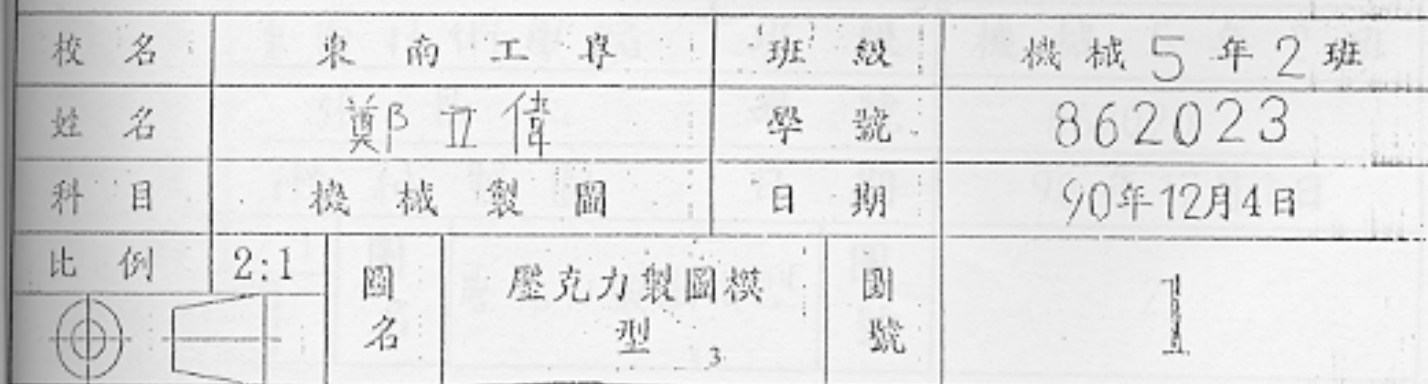 校名 東南工專 班級 機械5年2班
姓名 鄭立偉 學號 862023
科目 機械製圖 日期 90年12月4日
比例 2:1 圖名 壓克力製圖模型 圖號 1
3